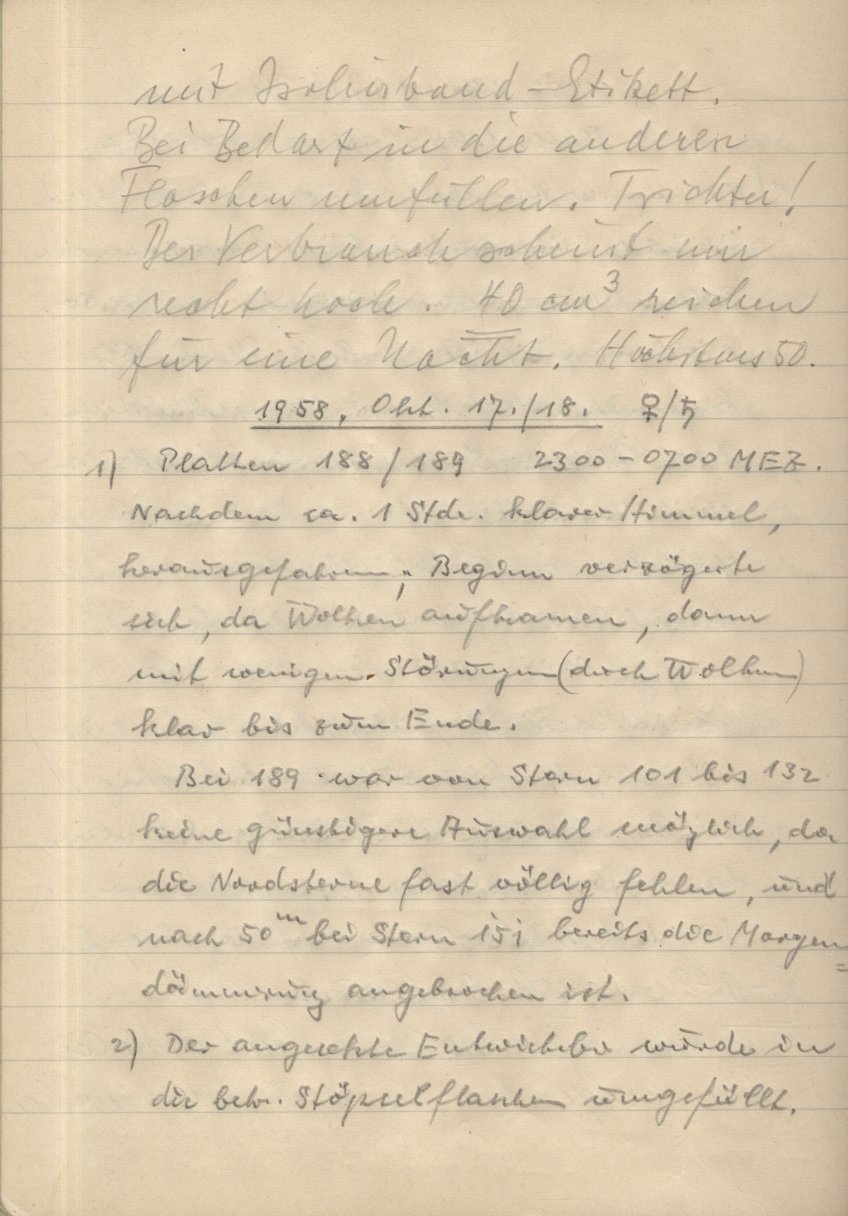 mit Isolierband-Etikett.
Bei Bedarf in die anderen
Flaschen umfüllen. Trichter!
Der Verbrauch scheint mir
recht hoch. 40 cm³ reichen
für eine Nacht. Höchstens 50.
1958, Okt. 17./18. ♀/♄
1) Platten 188/189 2300-0700 MEZ.
Nachdem ca. 1 Stde. klarer Himmel,
herausgefahren; Beginn verzögerte
sich, da Wolken aufkamen, dann
mit wenigen Störungen (durch Wolken)
klar bis zum Ende.
Bei 189 war von Stern 101 bis 132
keine günstigere Auswahl möglich, da
die Nordsterne fast völlig fehlen, und
nach 50ᵐ bei Stern 151 bereits die Morgen=
dämmerung angebrochen ist.
2) Der angesetzte Entwickler wurde in
die betr. Stöpselflaschen umgefüllt.